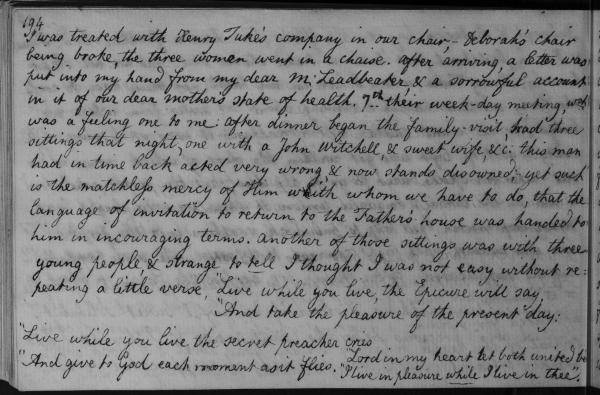 194
I was treated with Henry Tuke's company in our chair,- Deborah's chair
being broke, the three women went in a chaise. after arriving, a letter was
put into my hand from my dear M: Leadbeater & a sorrowful account
in it of our dear mother's state of health. 7th. their week-day meeting, wch
was a feeling one to me: after dinner began the family-visit, had three
sittings that night, one with a John Witchell, & sweet wife, &c: this man
had in time back acted very wrong & now stands disowned; yet such
is the matchless mercy of Him with whom we have to do, that the
language of invitation to return to the Father's house was handed to
him in incouraging terms. another of those sittings was with three
young people, & strange to tell I thought I was not easy without re=
peating a little verse, "Live while you live, the Epicure will say,
"And take the pleasure of the present day:
"Live while you live the secret preacher cries
"And give to God each moment as it flies. "Lord in my heart let both united be
"I live in pleasure while I live in thee".